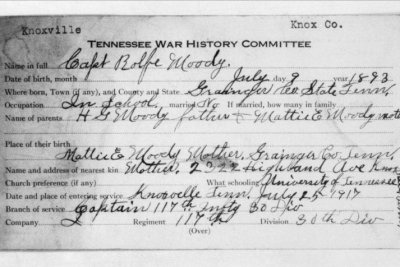 Knoxville Knox Co.
TENNESSEE WAR HISTORY COMMITTEE
Name in full Capt Rolfe Moody.
Date of birth, month July day 9 year 1893
Where born, Town (if any), and County and State Grainger State Tenn.
Occupation In School, married No If married, how many in family
Name of parents H G Moody father & Mattie E Moody
Place of their birth
Mattie E Moody Mother, Grainger Co Tenn.
Name and address of nearest kin Mother, Highland Ave Knox
Church preference (if any) What schooling University of Tennessee
Date and place of entering service Knoxville Tenn. July 25, 1917
Branch of service Captain 117th Infty 30 Div
Company Regiment 117th Division 30th Div
(Over)